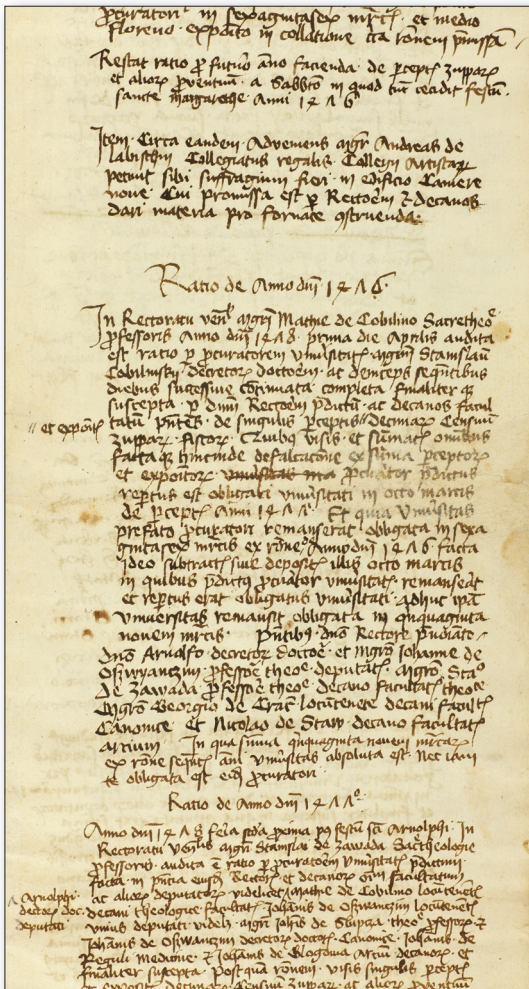 procuratori in sexagintasex mrcis et medio
floreno exposito in collatione
Restat ratio p futuro año facienda de pceptis zupparum
et aliorum proventuum a Sabbto in quod tuc cecidit festum
sancte Margarethe Anni 1476
Item Circa eandem Adveniens mgr Andreas de
labischin Collegiatus regalis Collegii Artistarum
petiuit sibi suffragium fieri in edificio Camere
noue Cui promissa est p Rectorem et decanos
dari materia pro fornace construenda
Ratio de Anno dni 1476
In Rectoratu venlis mgri Mathie de Cobilino Sacretheoe
pfessoris Anno dni 1478 prima die Aprilis audita
est ratio p pcuratorem Vniuersitatis mgrm Stanislaum
Cobilinski decretorum doctorem ac deinceps sequentibus
diebus successiue continuata completa finaliterque
suscepta p dnm Rectorem pdictum ac decanos facul
tatum pntes de singulis pceptis decimarum Censuum
// et expositis
zupparum fistorum Ciuibus visis et sumatis omnibus
factaque hincinde defalcacone ex summa pceptorum
et expositorum pcurator pdictus
reptus est obligari vniuersitati in octo marcis
de pceptis Anni 1477 Et quia Vniuersitas
prefato pcuratori remanserat obligata in sexa
gintasex mrcis ex rone Anni dni 1476 facta
ideo subtractis siue depositis illis octo marcis
in quibus pdictus pcurator vniuersitatis remanserat
et reptus erat obligatus vniuersitati adhuc ipa
Vniuersitas remansit obligata in quinquaginta
nouem mrcis pntibus dno Rectore pnoiato
dno Arnolfo decretorum doctore et mgro Iohanne de
Oswyanczim pfessore theoe deputatis mgro Stao
de Zawada pfessore theoe decano facultatis theoce
Mgro Georgio de Crac locutenete decani facultatis
Canonice Et Nicolao de Staw decano facultatis
artium In qua suma quinquaginta nouem mrcarum
ex rone sequentis ani vniuersitas absoluta est Nec iam
te obligata est eius pcuratori
Ratio de Anno dni 1477o
Anno dni 1478 feria scda proxima post festum sti Arnolphi In
Rectoratu Venlis mgri Stanislai de Zawada Sacretheologie
pfessoris audita e ratio p pcuratorem Vniuersitatis pdictum
facta in pntia eiusdem Rectoris et decanorum omium facultatum
ac aliorum deputatorum videlicet Mathie de Cobilino locutenentis
Arnolphi
decretorum doc
deputati
decani theologice facultatis Iohanis de Oswanczim locutenentis
vnius deputati videlicet mgri Iohis de Slupcza theoe pfessorum et
Iohanis de Oswanczim decretorum doctoris Canonice Iohanis de
Reguli medicine et Iohanis de Glogouia Arcium decanorum et
finaliter suscepta Postquam ronem visis singulis pceptis
et expositis decimarum Censuum zupparum et aliorum prouentuum